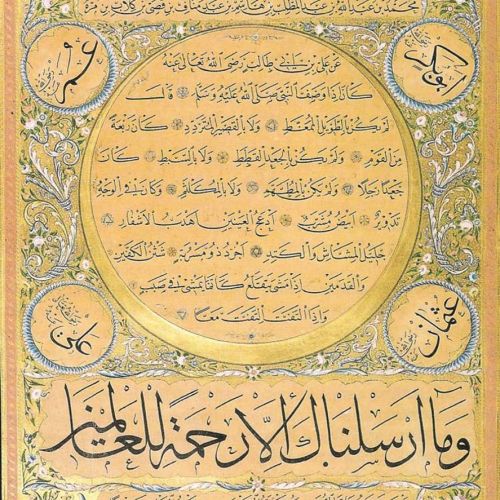 محمد بن عبد الله بن عبد المطلب بن هاشم بن عبد مناف بن قصي بن كلاب بن مرة
ابوبكر
عمر
عَنْ عَلِيِّ بْنِ اَبِي طَالِبٍ رَضِيَ اللهُ تَعَالَى عَنْهُ
كَانَ اِذَا وَصَفَ النَّبِيَّ صَلَّى اللهُ عَلَيْهِ وَسَلَّمَ قَالَ
لَمْ يَكُنْ بِالطَّوِيلِ الْمُمَّغِطِ وَلَا بِالْقَصِيرِ الْمُتَرَدِّدِ كَانَ رَبْعَةً
مِنَ الْقَوْمِ وَلَمْ يَكُنْ بِالْجَعْدِ الْقَطَطِ وَلَا بِالسَّبِطِ كَانَ
جَعْدًا رَجِلًا وَلَمْ يَكُنْ بِالْمُطَهَّمِ وَلَا بِالْمُكَلْثَمِ وَكَانَ فِي الْوَجْهِ
تَدْوِيرٌ اَبْيَضُ مُشْرَبٌ اَدْعَجُ الْعَيْنَيْنِ اَهْدَبُ الْاَشْفَارِ
جَلِيلُ الْمُشَاشِ وَالْكَتَدِ اَجْرَدُ ذُو مَسْرُبَةٍ شَثْنُ الْكَفَّيْنِ
وَالْقَدَمَيْنِ اِذَا مَشَى يَتَقَلَّعُ كَاَنَّمَا يَمْشِي فِي صَبَبٍ
وَاِذَا الْتَفَتَ الْتَفَتَ مَعًا
عثمان
علي
وَمَا اَرْسَلْنَاكَ اِلَّا رَحْمَةً لِلْعَالَمِينَ